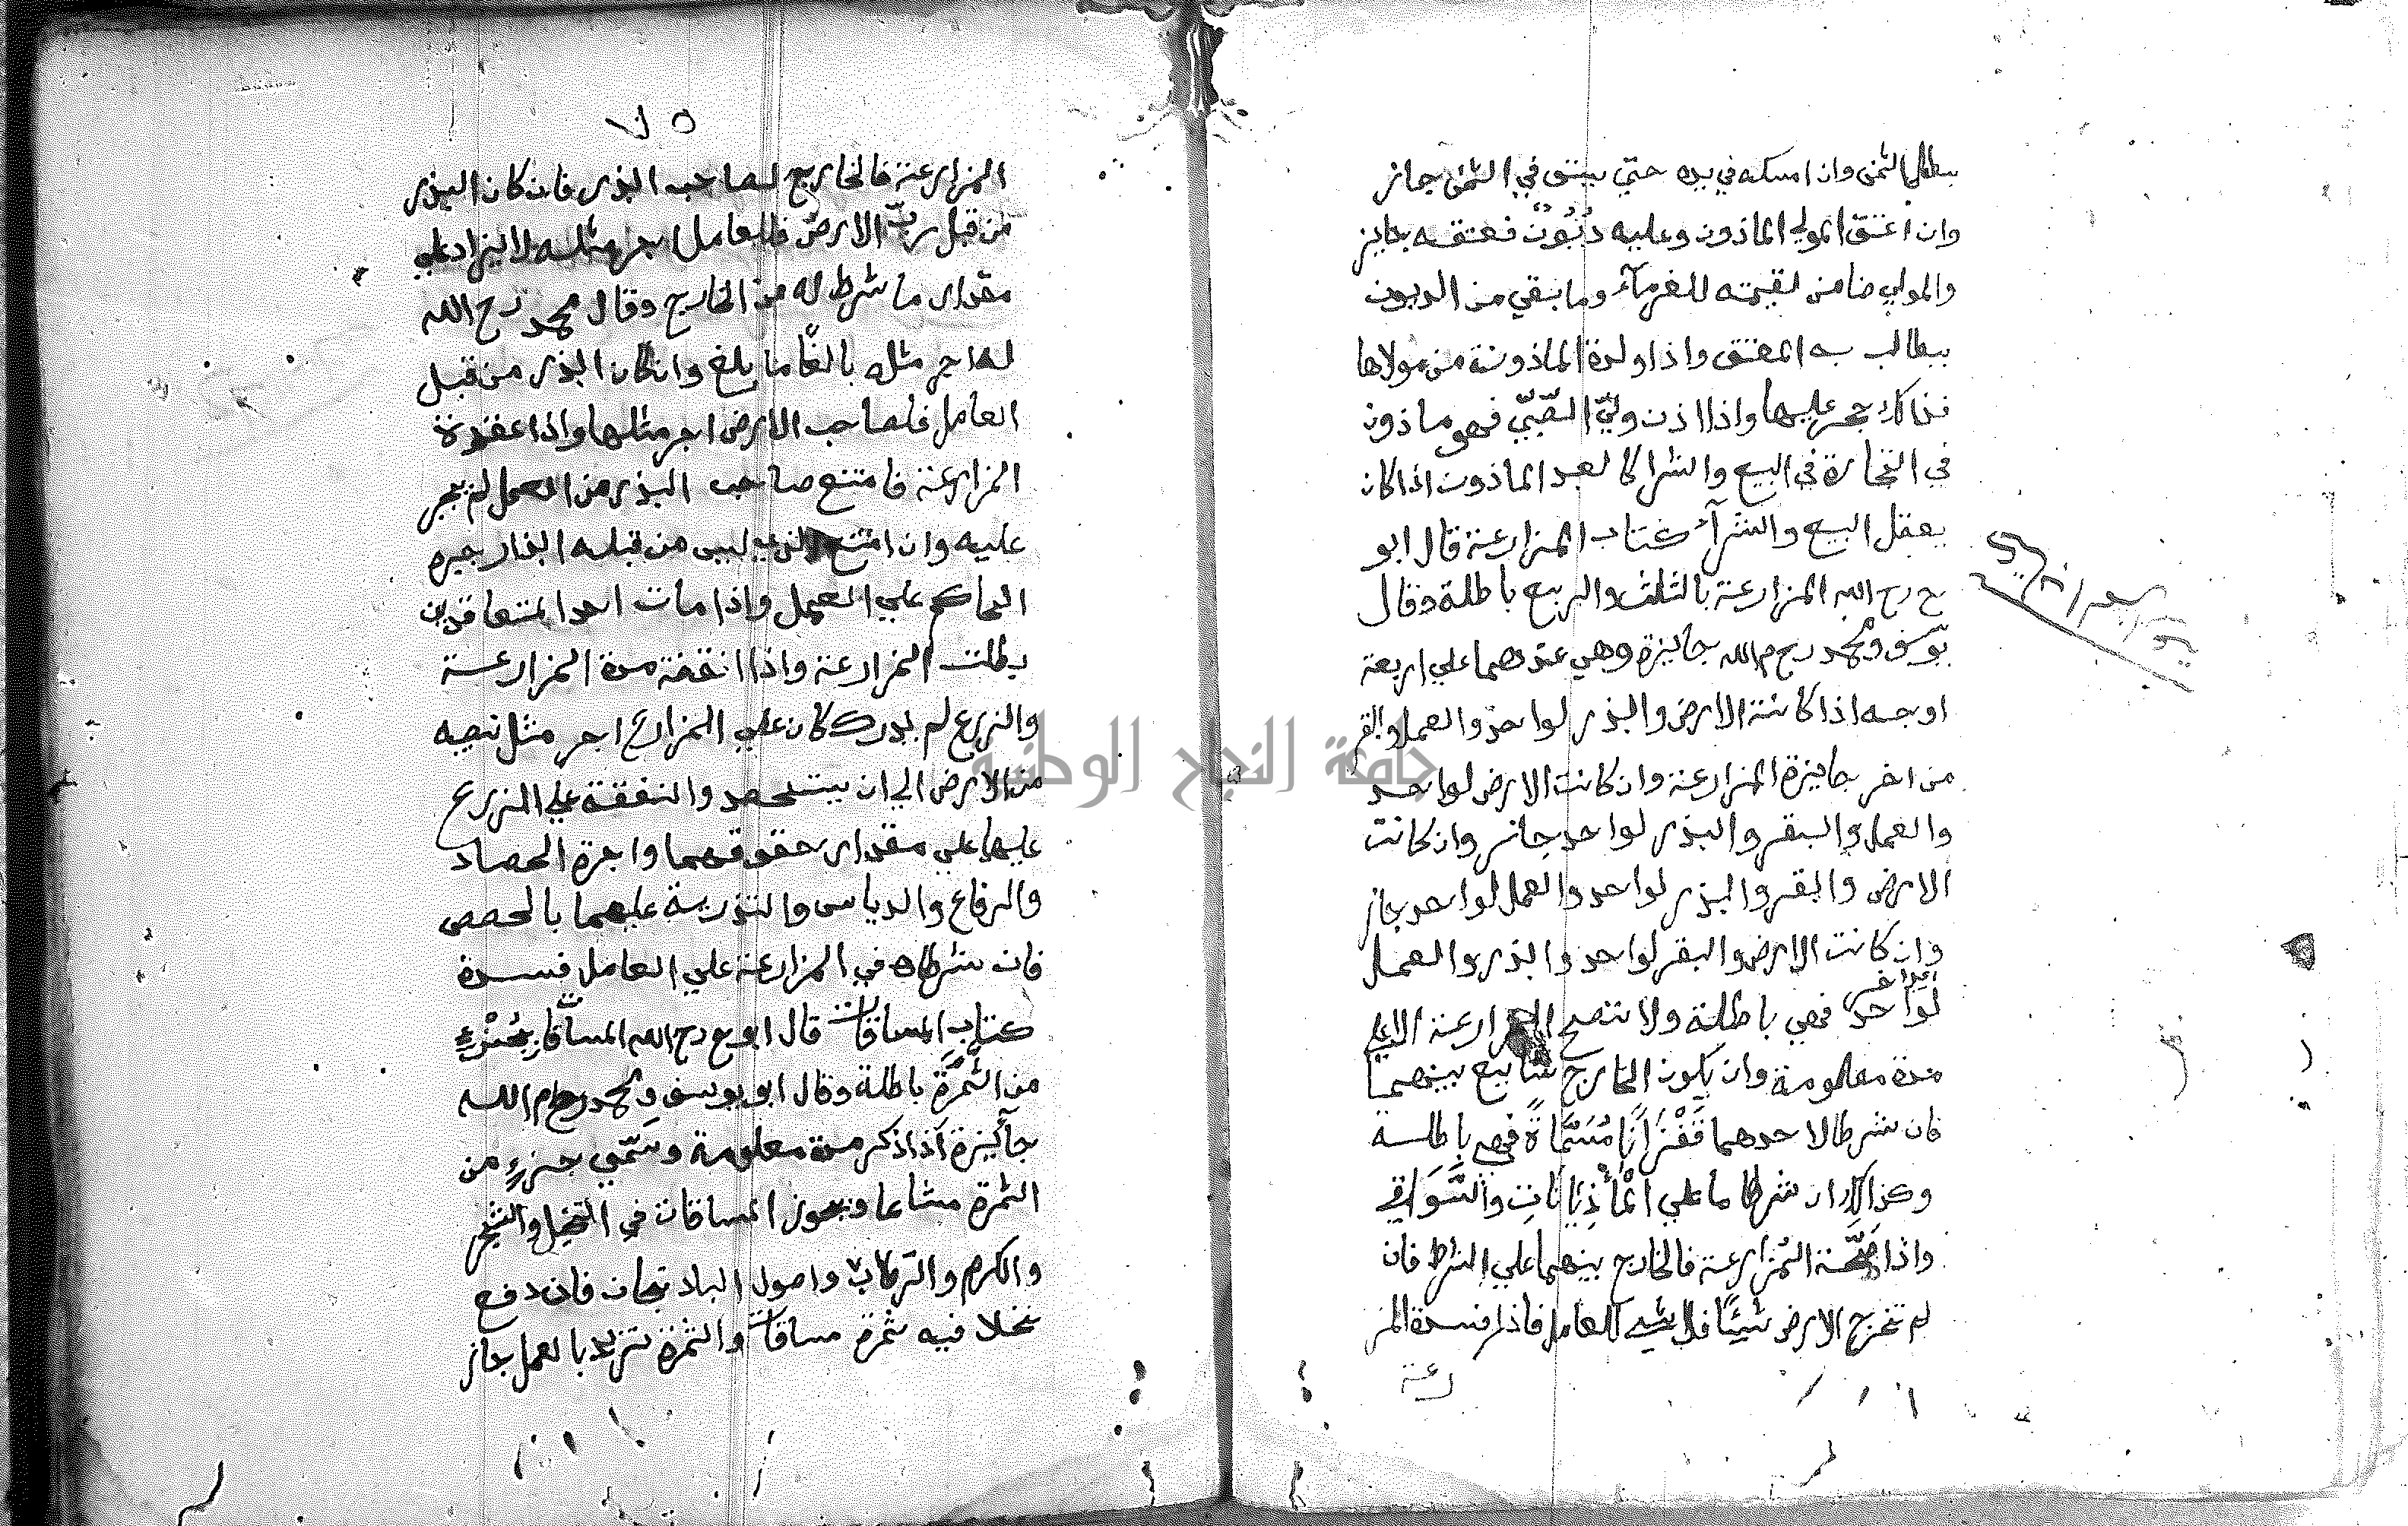 يبطل الثمن وان امسكه في يده حتي يستوفي الثمن جائز
وان اعتق المولي الماذون وعليه ديُونٌ فعتقه جايز
والمولي ضامن لقيمته للغرمآء وما بقي من الديون
يطالب به المعتق واذا ولدة الماذونة من مولاها
فذالك حجر عليها واذا اذن وليّ الصّبيّ فهو ماذون
في التجارة في البيع والشرا كالعبد الماذون اذا كان
يعقل البيع والشرآء كتاب المزارعة قال ابو
ح رح الله المزارعة بالثلث والربع باطلة وقال
يوسف ومحمد رحم الله جايزة وهي عندهما علي اربعة
اوجه اذا كانة الارض والبذر لواحد والعمل والبقر
من اخر جايزة المزارعة وان كانت الارض لواحد
والعمل والبقر والبذر لواحد جاز وان كانت
الارض والبقر والبذر لواحد والعمل لواحد جاز
وان كانت الارض والبقر لواحد والبذر والعمل
لواحد فهي باطلة ولا تصح المزارعة الا علي
مدة معلومة وان يكون الخارج شايع بينهما
فان شرطا لاحدهما قَفْزَانًا مُسَمَّاةً فهي باطلة
وكذالك ان شرطا ما علي المأذِيَانَاتِ والسَّوَاقي
واذا صَحَّة المُزارعة فالخارج بينهما علي الشرط فان
لم تخرج الارض شيئًا فلا شيء للعامل فاذا فسدة المز
رعة
٧٥
المزارعة فالخارج لصاحب البذر فان كان البذر
من قبل ربّ الارض فللعامل اجر مثله لا يزاد علي
مقدار ما شرط له من الخارج وقال محمد رح الله
له اجر مثله بالغًا ما بلغ وان كان البذر من قبل
العامل فلصاحب الارض اجر مثلها واذا عقدة
المزارعة فامتنع صاحب البذر من العمل لم يجبر
عليه وان امتنع الذي ليس من قبله البذر جبره
الحاكم علي العمل واذا مات احد المتعاقدين
بطلت المزارعة واذا انقضة مدة المزارعة
والزرع لم يدرك كان علي المزارع اجر مثل نصيبه
من الارض الي ان يستحصد والنفقة علي الزرع
عليها علي مقدار حقوقهما واجرة الحصاد
والرفاع والدياس والتذرية عليهما بالحصص
فان شرطاه في المزارعة علي العامل فسدة
كتاب المساقات قال ابو ح رح الله المساقات بجُزْءٍ
من الثَّمَرَة باطلة وقال ابو يوسف ومحمد رحم الله
جآئزة اذا ذكر مدة معلومة وسَمّي جزءٍ من
الثمرة مشاعا ويجوز المساقات في النخل والشجر
والكرم والرّطاب واصول الباذنجان فان دفع
نخلا فيه ثمرة مساقات والثمرة تزيد بالعمل جاز
جامعة النجاح الوطنية